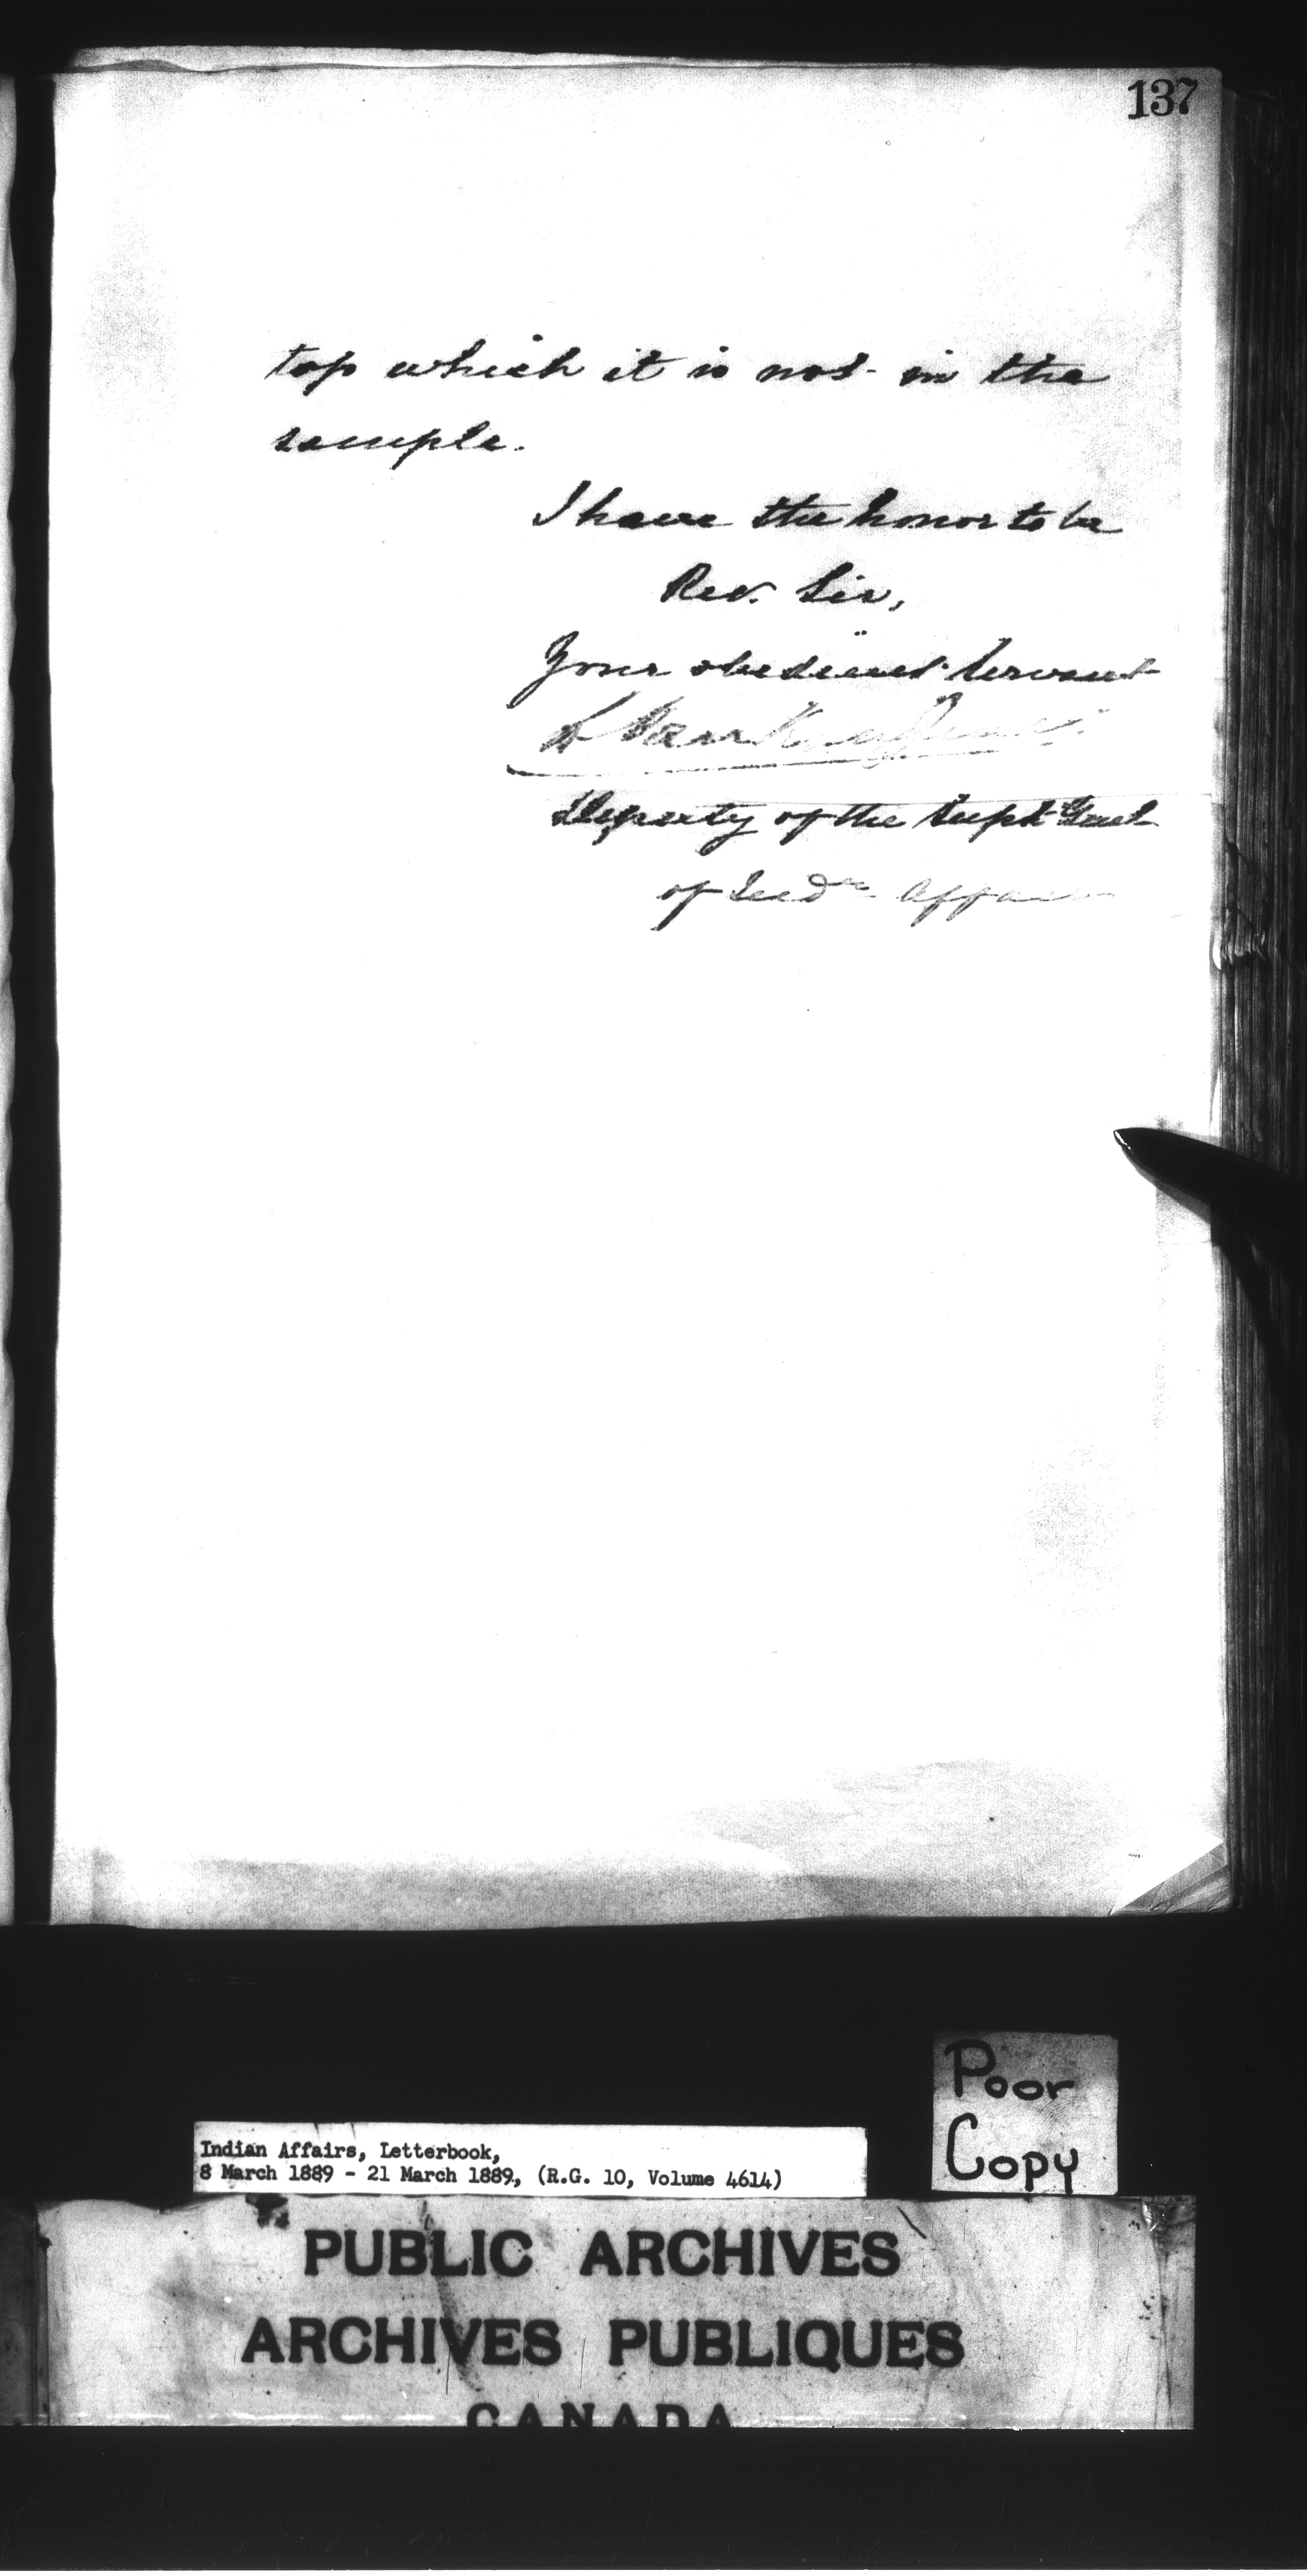 137
top which it is not in the
sample.
I have the honor to be
Rev. Sir,
Your obedient servant
L. Vankoughnet
Deputy of the Supt Genl
of Indn Affairs
Poor
Copy
Indian Affairs, Letterbook,
8 March 1889 - 21 March 1889, (R.G. 10, Volume 4614)
PUBLIC ARCHIVES
ARCHIVES PUBLIQUES
CANADA